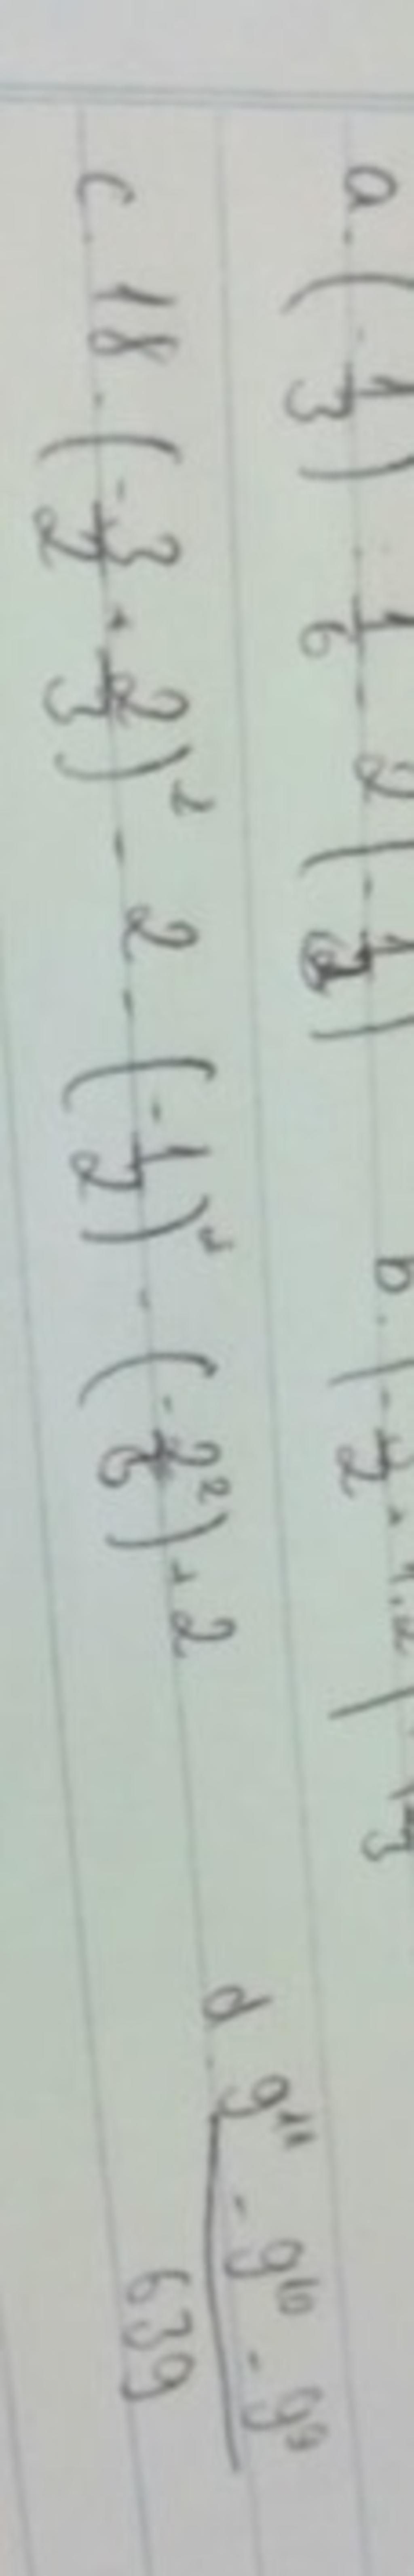 a. (-1/3) · 1/6 - 2 (-1/2)
b.
c. 18 · (-3/2 + 2/3)² - 2 - (-1/2)² - (-2²/6) + 2
d. 9¹¹ - 9¹⁰ - 9⁹ / 639